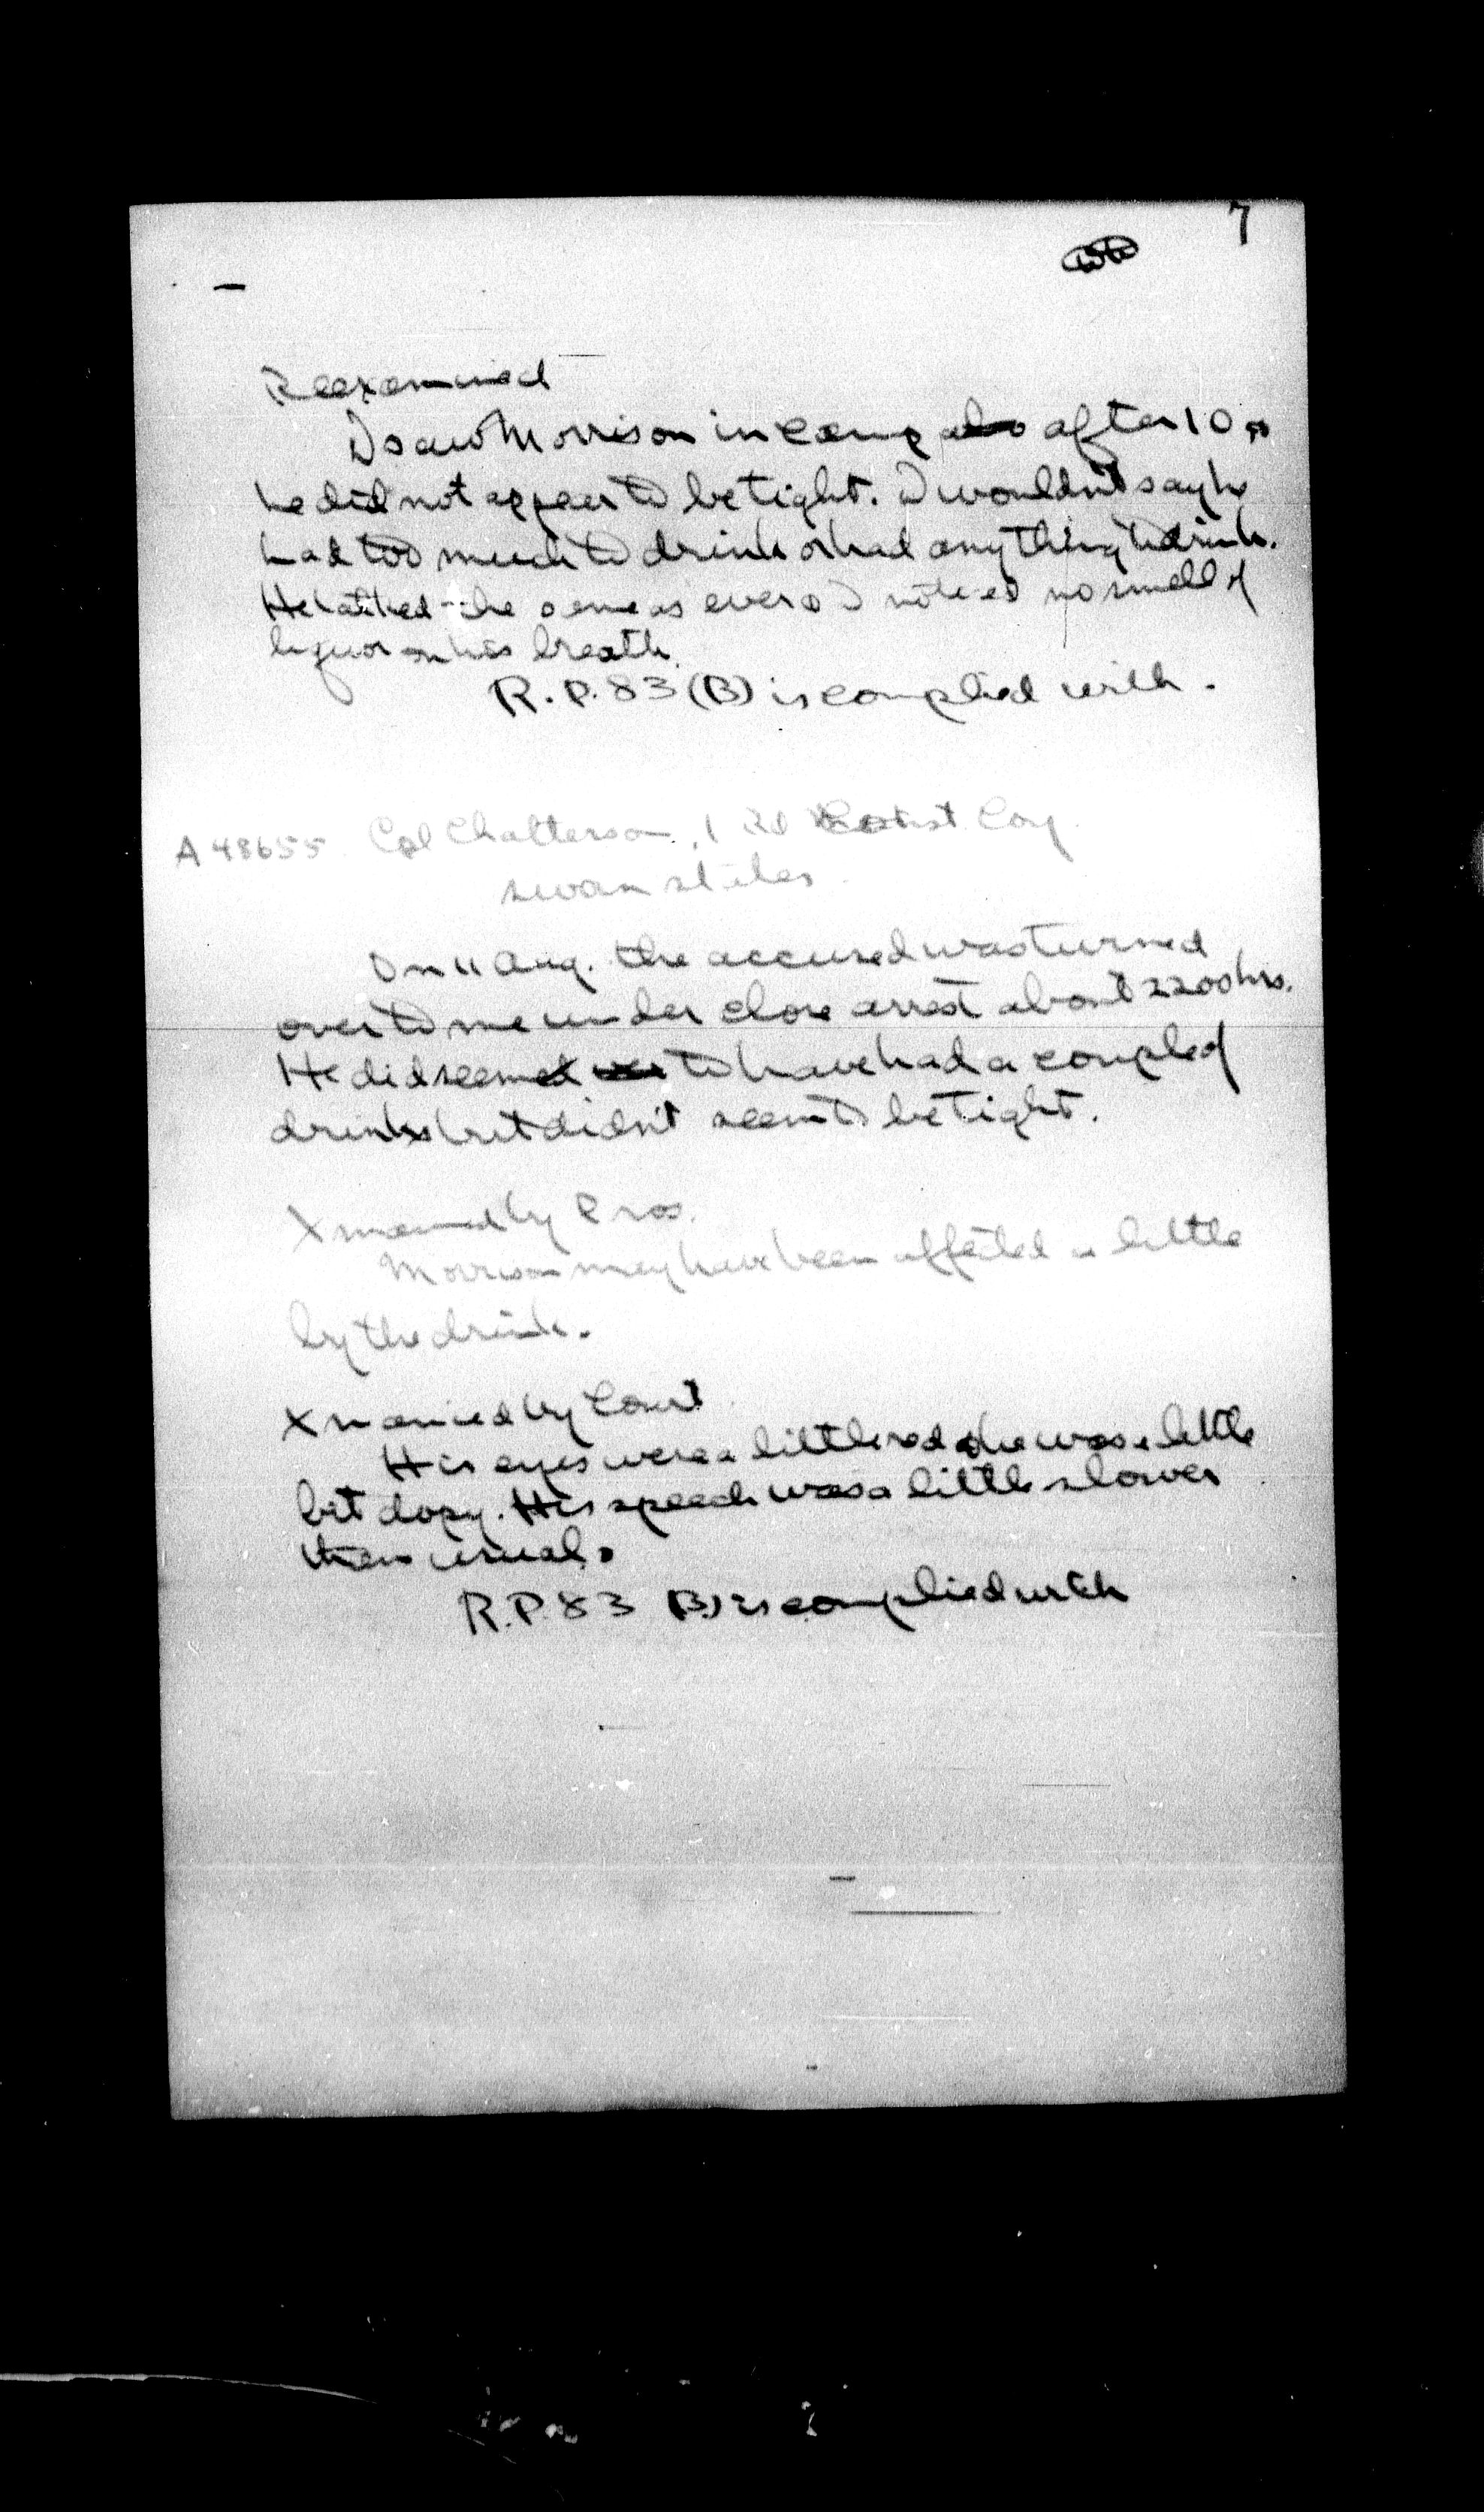 7
Reexamined
I saw Morrison in camp after 10
he did not appear to be tight. I wouldn't say he
had too much to drink or had anything to drink.
He talked the same as ever & I noticed no smell of
liquor on his breath.
R.P. 83 (B) is complied with.
A 48655 Cpl Chatterson, 1 Rd Const Coy
swan states
On 11 Aug. the accused was turned
over to me under close arrest about 2200 hrs.
He did seem to have had a couple of
drinks but didn't seem to be tight.
Xmained by Pros.
Morrison may have been affected a little
by the drink.
Xmained by Court
His eyes were a little red & he was a little
bit dopy. His speech was a little slower
than usual.
R.P. 83 (B) is complied with